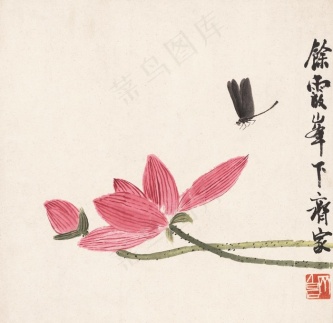 餘霞峯下齊家
菜鸟图库